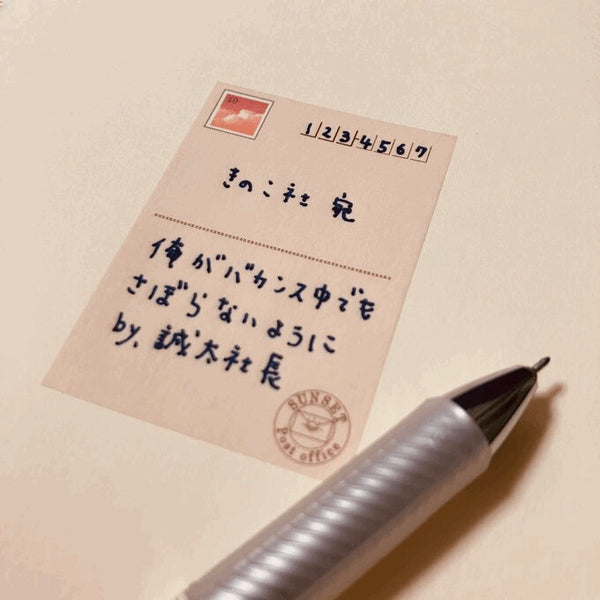 50
123-4567
きのこ社 宛
俺がバカンス中でも
さぼらないように
by, 誠太社長
SUNSET
Post office